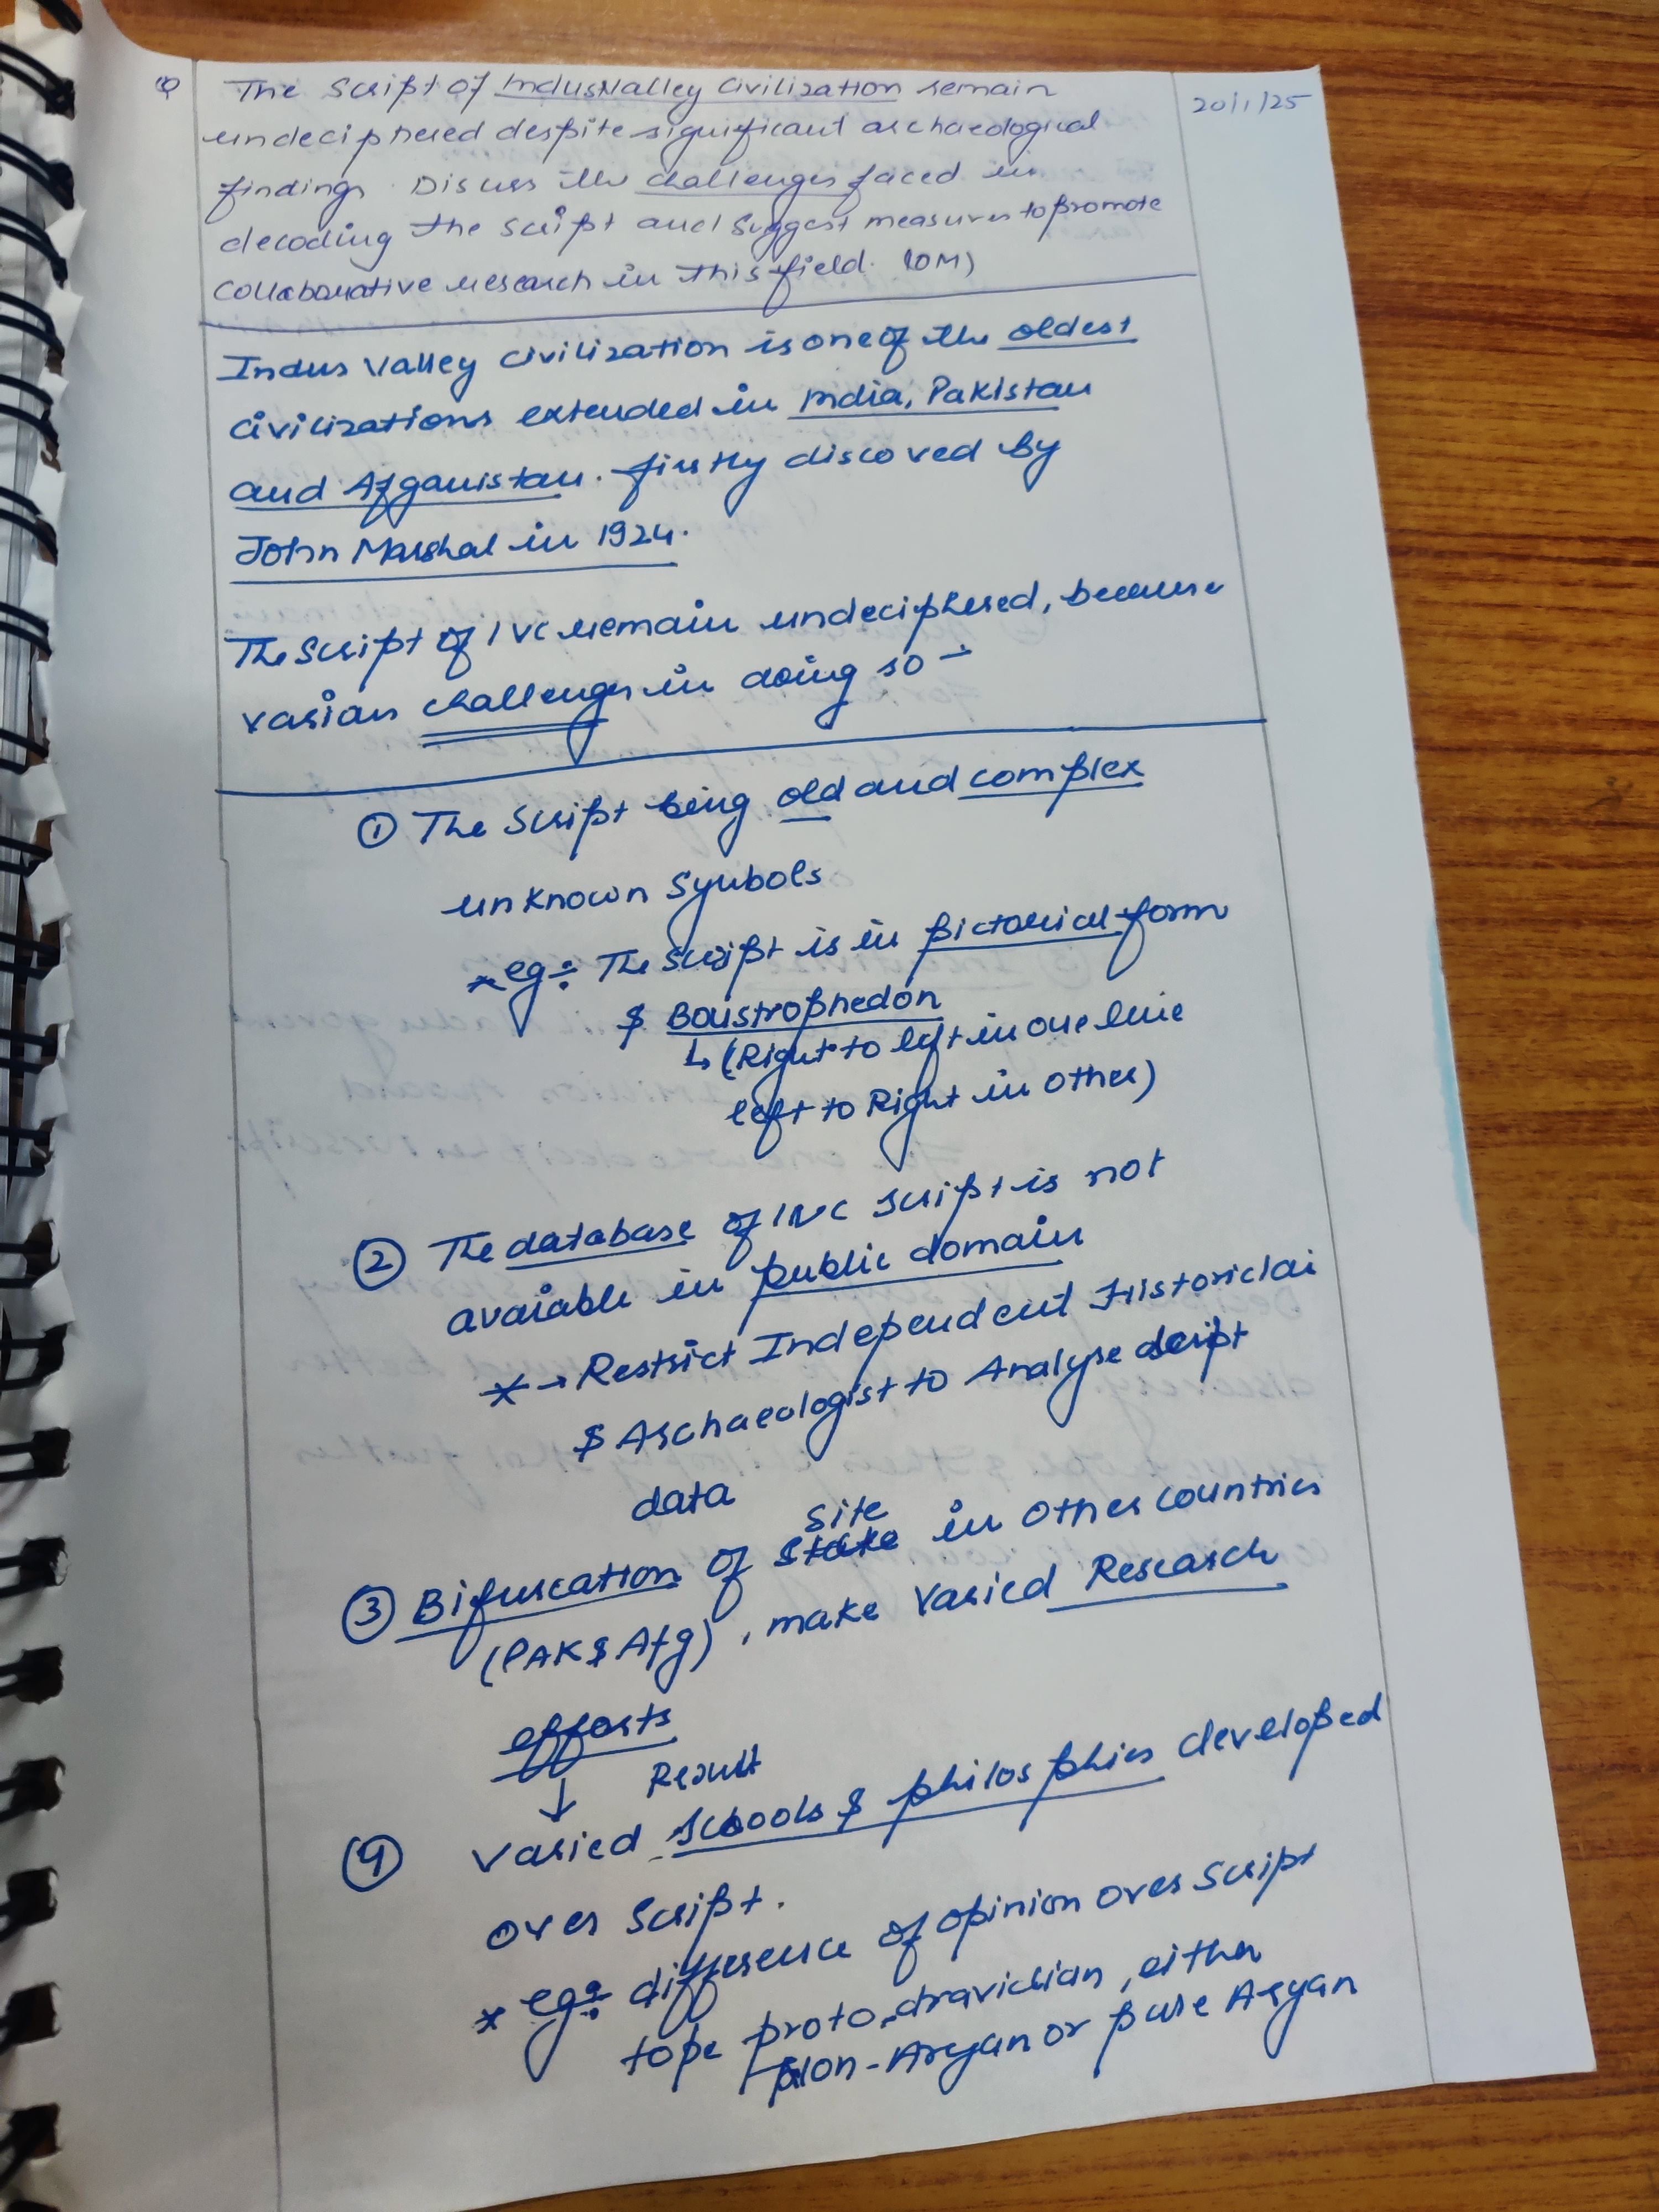 Q The Script of Indus Valley Civilization remain
20/1/25
undeciphered despite significant archaeological
findings. Discuss the challenges faced in
decoding the script and suggest measures to promote
collaborative research in this field. 10M)
Indus Valley Civilization is one of the oldest
civilizations extended in India, Pakistan
and Afganistan. firstly discoved by
John Marshal in 1924.
The Script of IVC remain undeciphered, because
various challenges in doing so -
① The Script being old and complex
unknown Symbols
* eg:- The Script is in pictorial form
$ Boustrophedon
↳ (Right to left in one line
left to Right in other)
② The database of IVC script is not
avaiable in public domain
* → Restrict Independent Historiclai
$ Archaeologist to Analyse script
data
③ Bifurcation of site in other countries
(PAK $ Afg), make varied Research
efforts
↓ Result
④ Varied schools $ philosphies developed
over Script.
* eg:- difference of opinion over script
to be proto-dravidian, either
Non-Aryan or pure Aryan